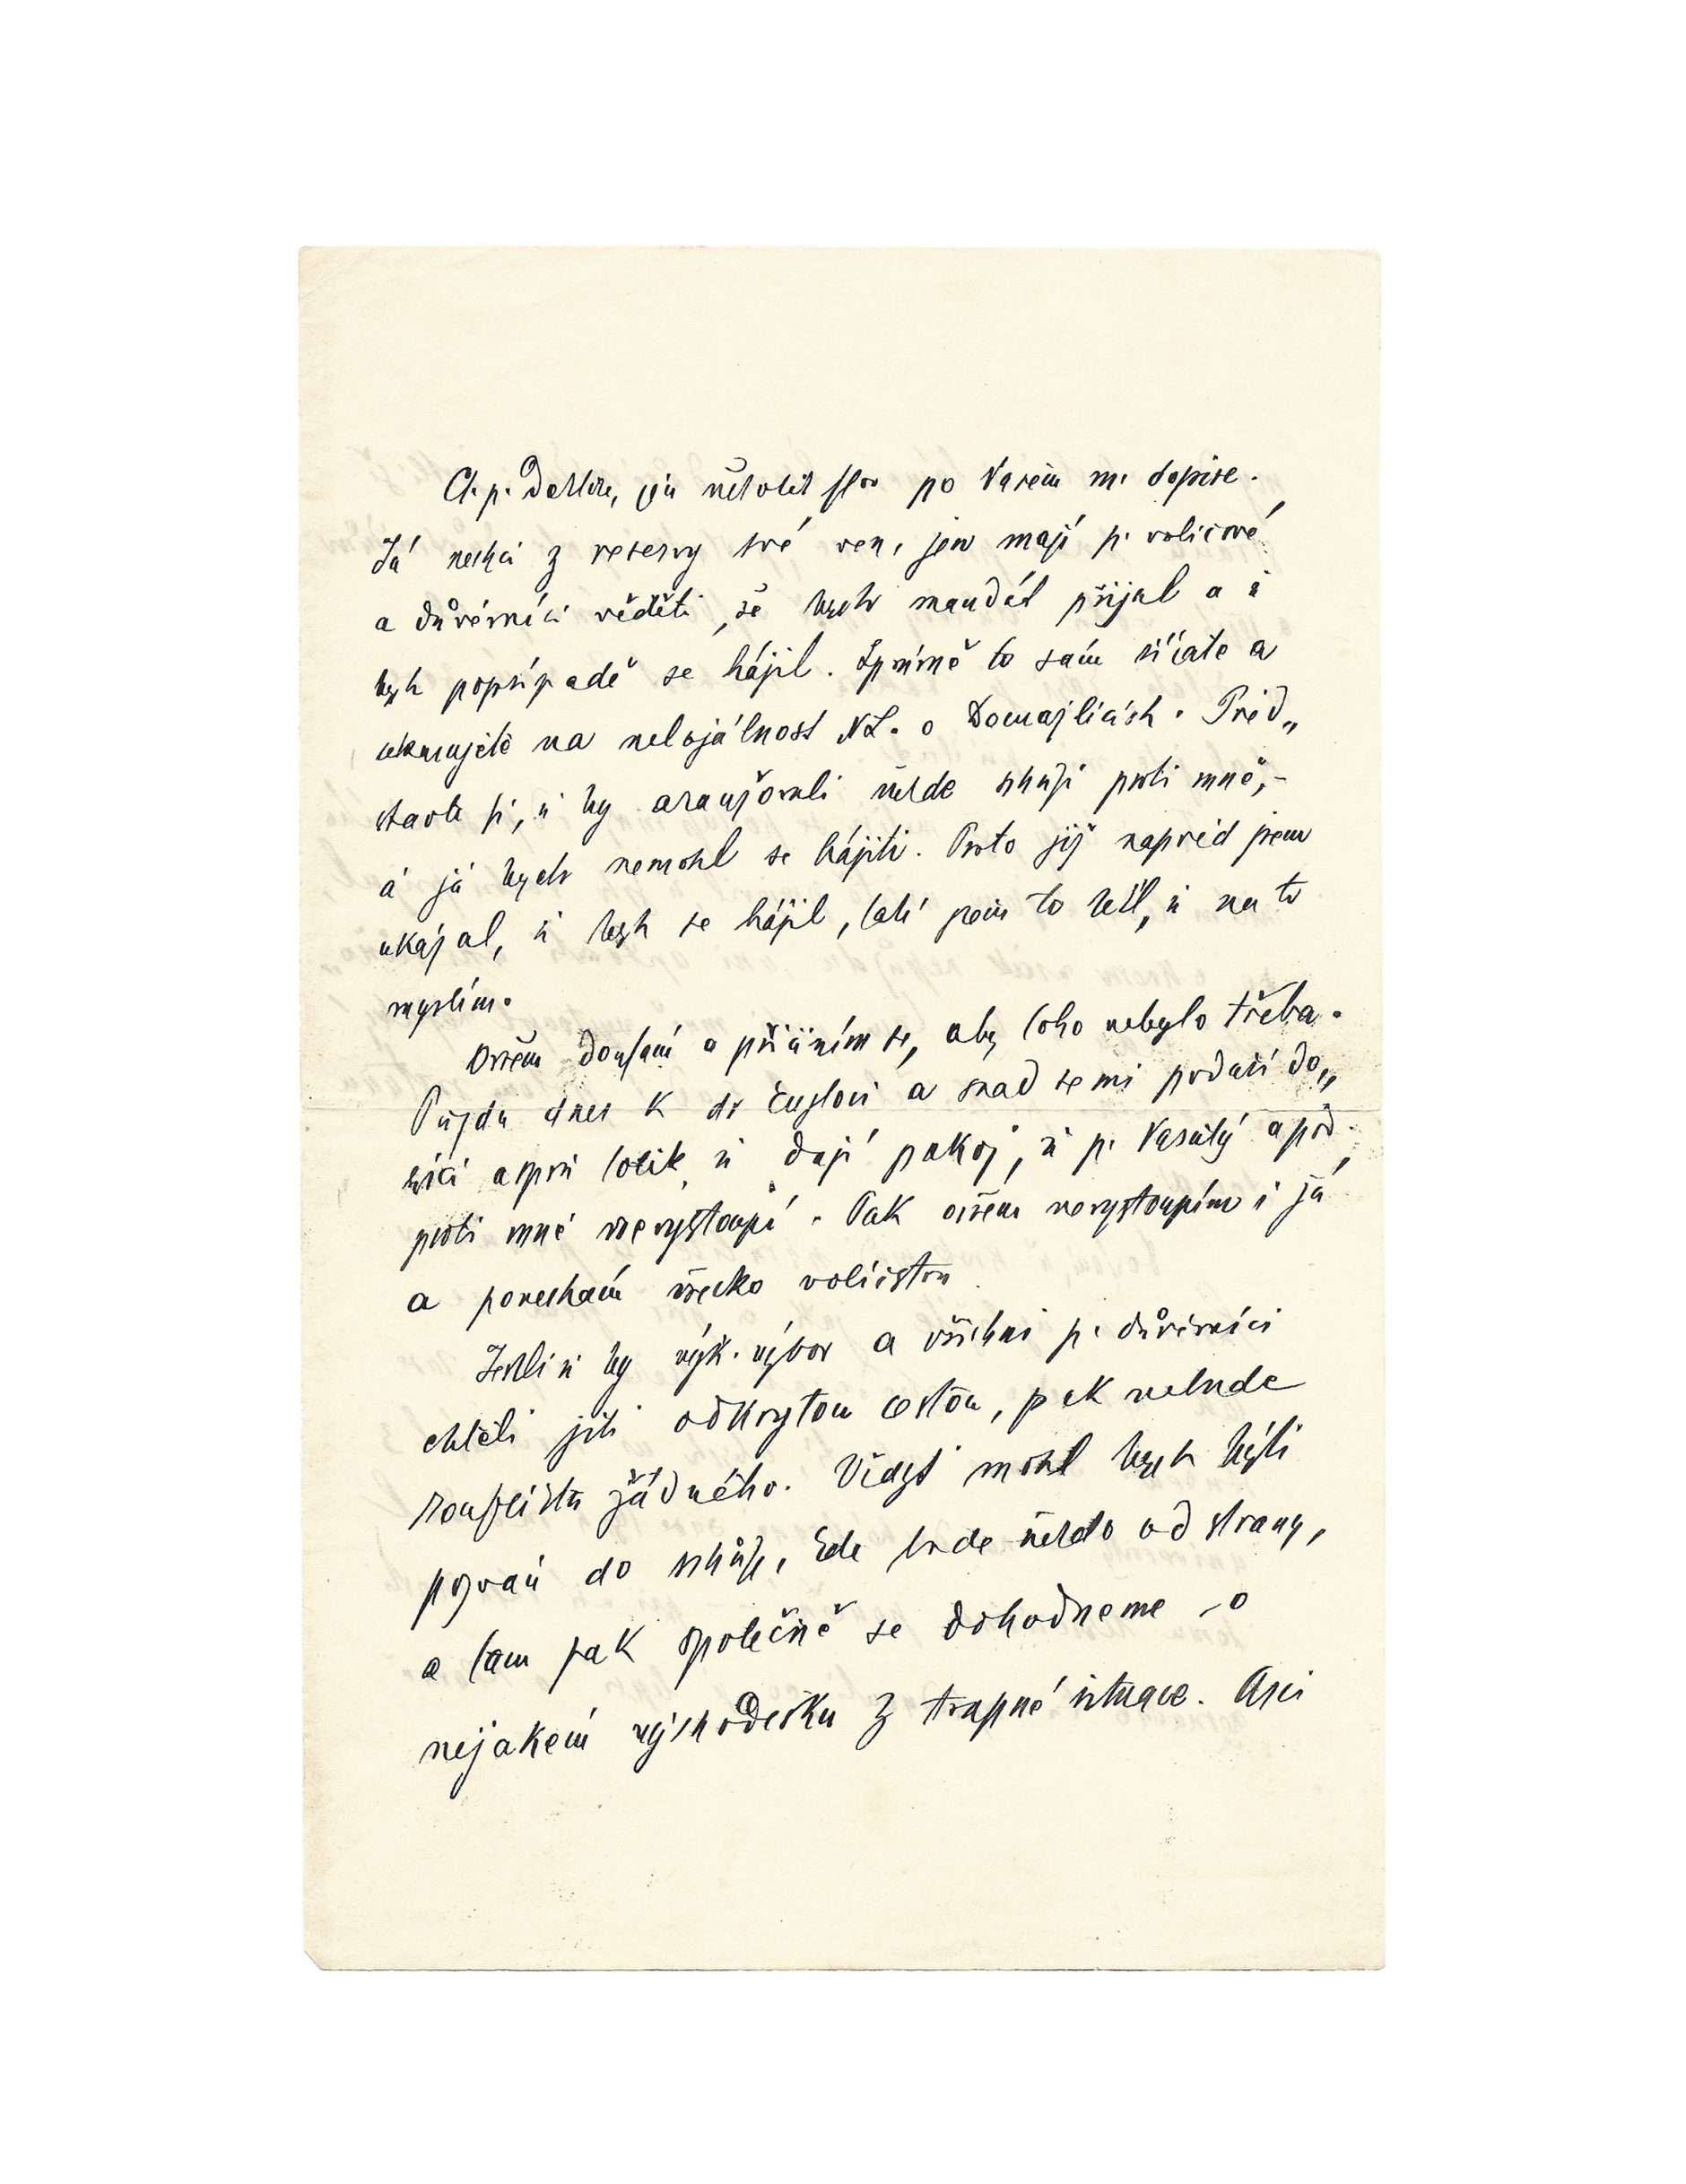 Ct. p. Doktore, jen několik slov po Vašem mi dopise.
Já nechci z reservy své ven, jen mají p. voličové
a důvěrníci věděti, že bych mandát přijal a že
bych popřípadě se hájil. Správně to sám cítíte a
ukazujete na nelojálnost NL. o Domažlicích. Před„
stavte si, že by aranžovali někde schůzi proti mně,-
a já bych nemohl se hájiti. Proto již napřed jsem
ukázal, že bych se hájil, také jsem to řekl, že na to
myslím.
Ovšem doufám a přičiním se, aby toho nebylo třeba.
Půjdu dnes k dr. a snad se mi podaří do„
cíliti aspoň tolik, že dají pokoj, že p. Vasatý a pod.
proti mně nevystoupí. Pak ovšem nevystoupím i já
a ponechám všecko voličstvu.
Jestli že by výk. výbor a všichni p. důvěrníci
chtěli jíti odkrytou cestou, pak nebude
konfliktu žádného. Vždyť mohl bych býti
pozván do schůze, kde bude někdo od strany,
a tam pak společně se dohodneme o
nějakém východisku z trapné situace. Asi